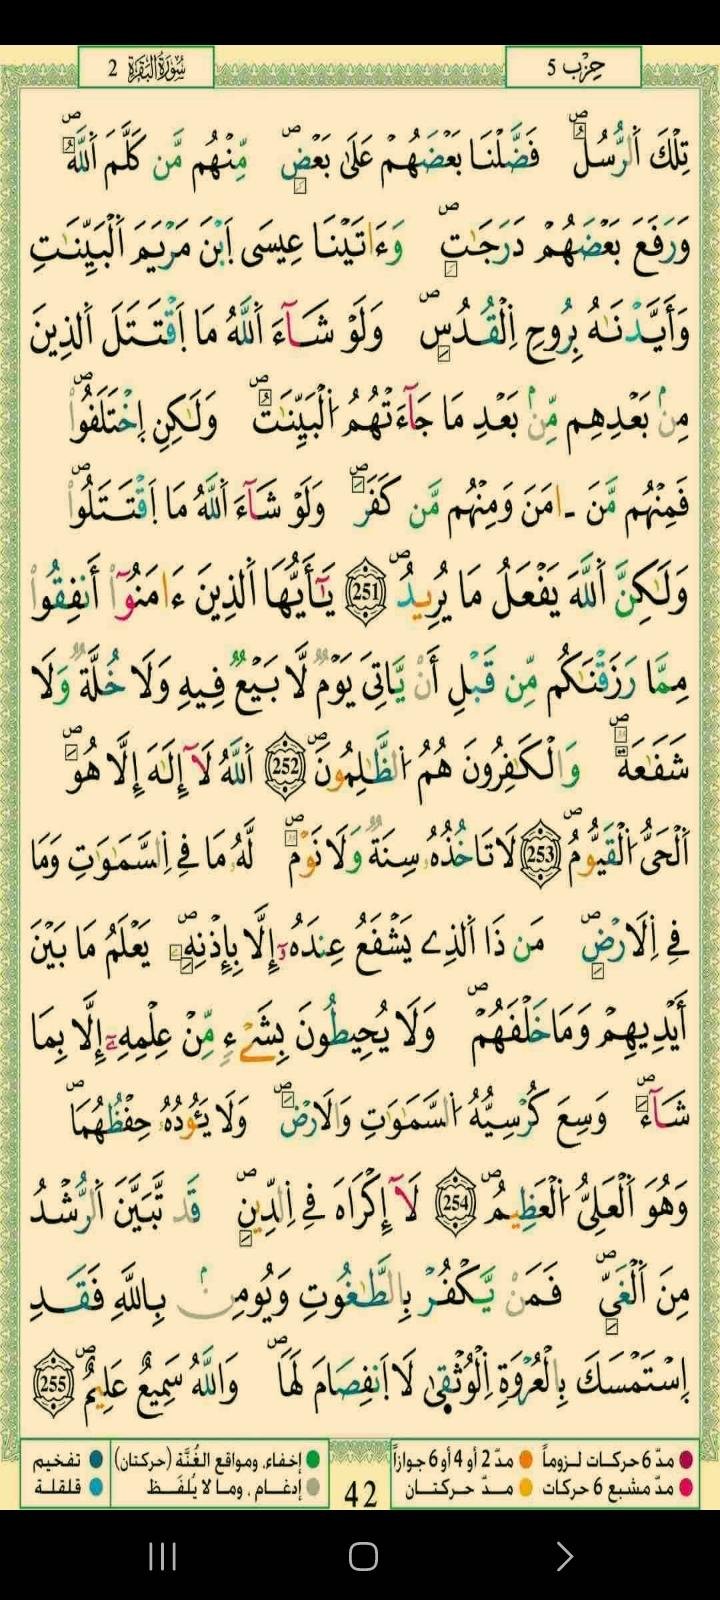 سُورَةُ البَقَرَةِ 2
حِزْب 5
تِلْكَ اَ۬لرُّسُلُ فَضَّلْنَا بَعْضَهُمْ عَلَىٰ بَعْضٖۖ مِّنْهُم مَّن كَلَّمَ اَ۬للَّهُۖ
وَرَفَعَ بَعْضَهُمْ دَرَجَٰتٖۖ وَءَاتَيْنَا عِيسَى اَ۪بْنَ مَرْيَمَ اَ۬لْبَيِّنَٰتِ
وَأَيَّدْنَٰهُ بِرُوحِ اِ۬لْقُدُسِۖ وَلَوْ شَآءَ اَ۬للَّهُ مَا اَ۪قْتَتَلَ اَ۬لذِينَ
مِنۢ بَعْدِهِم مِّنۢ بَعْدِ مَا جَآءَتْهُمُ اُ۬لْبَيِّنَٰتُۖ وَلَٰكِنِ اِ۪خْتَلَفُواْۖ
فَمِنْهُم مَّنَ اٰمَنَ وَمِنْهُم مَّن كَفَرَۖ وَلَوْ شَآءَ اَ۬للَّهُ مَا اَ۪قْتَتَلُواْۖ
وَلَٰكِنَّ اَ۬للَّهَ يَفْعَلُ مَا يُرِيدُۖ 251 يَٰٓأَيُّهَا اَ۬لذِينَ ءَامَنُوٓاْ أَنفِقُواْ
مِمَّا رَزَقْنَٰكُم مِّن قَبْلِ أَنْ يَّاتِيَ يَوْمٞ لَّا بَيْعٞ فِيهِ وَلَا خُلَّةٞ وَلَا
شَفَٰعَةٞۖ وَالْكَٰفِرُونَ هُمُ اُ۬لظَّٰلِمُونَۖ 252 اَ۬للَّهُ لَآ إِلَٰهَ إِلَّا هُوَۖ
اَ۬لْحَيُّ اُ۬لْقَيُّومُۖ 253 لَا تَاخُذُهُۥ سِنَةٞ وَلَا نَوْمٞۖ لَّهُۥ مَا فِے اِ۬لسَّمَٰوَٰتِ وَمَا
فِے اِ۬لَارْضِۖ مَن ذَا اَ۬لذِے يَشْفَعُ عِندَهُۥٓ إِلَّا بِإِذْنِهِۦۖ يَعْلَمُ مَا بَيْنَ
أَيْدِيهِمْ وَمَا خَلْفَهُمْۖ وَلَا يُحِيطُونَ بِشَےْءٖ مِّنْ عِلْمِهِۦٓ إِلَّا بِمَا
شَآءَۖ وَسِعَ كُرْسِيُّهُ اُ۬لسَّمَٰوَٰتِ وَالَارْضَۖ وَلَا يَـُٔودُهُۥ حِفْظُهُمَاۖ
وَهُوَ اَ۬لْعَلِيُّ اُ۬لْعَظِيمُۖ 254 لَآ إِكْرَاهَ فِے اِ۬لدِّينِۖ قَد تَّبَيَّنَ اَ۬لرُّشْدُ
مِنَ اَ۬لْغَيِّۖ فَمَنْ يَّكْفُرْ بِالطَّٰغُوتِ وَيُومِنۢ بِاللَّهِ فَقَدِ
اِ۪سْتَمْسَكَ بِالْعُرْوَةِ اِ۬لْوُثْقَىٰ لَا اَ۪نفِصَامَ لَهَاۖ وَاللَّهُ سَمِيعٌ عَلِيمٌۖ 255
مدّ 6 حركات لـزوماً مدّ 2 أو 4 أو 6 جوازاً
مدّ مشبع 6 حركات مـدّ حـركتـان
إخفاء، ومواقع الغُنَّة (حركتان) تفخيم
إدغـام، وما لا يُلفَـظ قلقلة
42